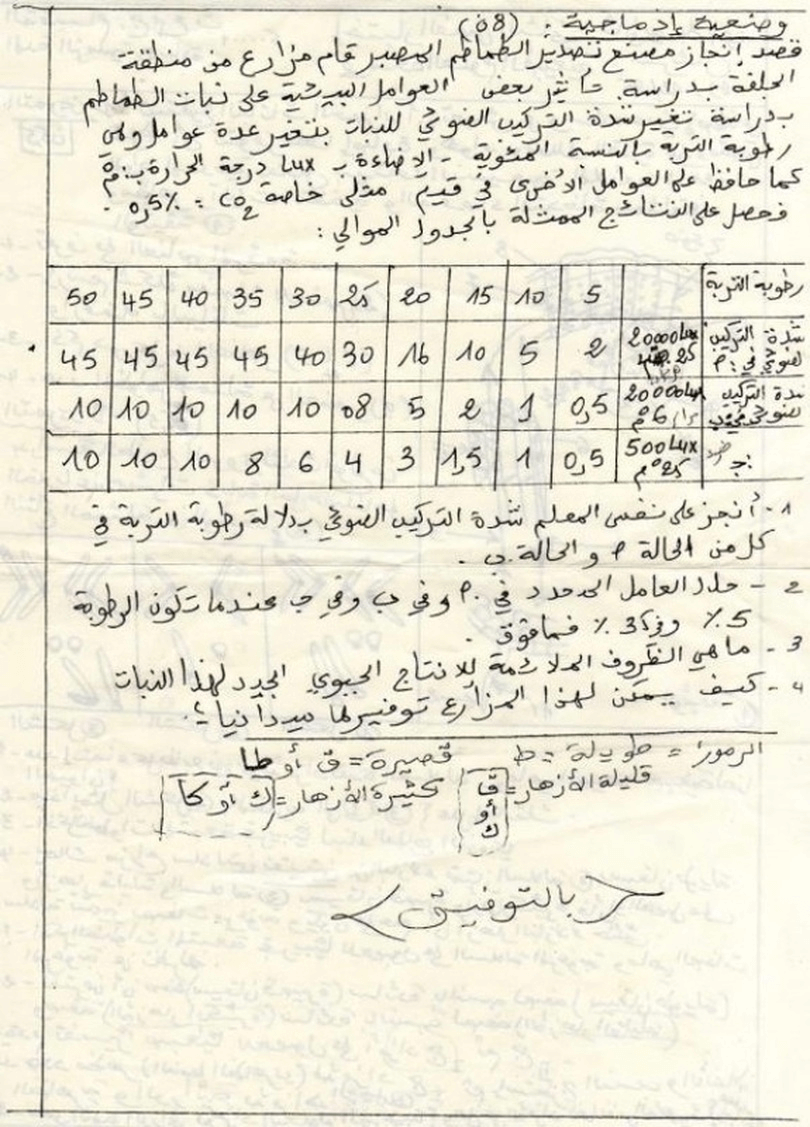 وضعية إدماجية : (08)
قصد إنجاز مصنع تصدير الطماطم المصبر قام مزارع من منطقة
الجلفة بدراسة تأثير بعض العوامل البيئية على نبات الطماطم
بدراسة تغير شدة التركيب الضوئي للنبات بتغير عدة عوامل وهي
رطوبة التربة بالنسبة المئوية - الإضاءة ب Lux درجة الحرارة ب: م°
كما حافظ على العوامل الأخرى في قيم مثلى خاصة CO2 = 0,5%.
فحصل على النتائج الممثلة بالجدول الموالي :
رطوبة التربة 5 10 15 20 25 30 35 40 45 50
شدة التركيب الضوئي في: م 20000Lux 25 م° 2 5 10 16 30 40 45 45 45 45
شدة التركيب الضوئي في ب 20000Lux 6 م° 0,5 1 2 5 08 10 10 10 10 10
ج: 500Lux 25 م° 0,5 1 1,5 3 4 6 8 10 10 10
1 - أنجز على نفس المعلم شدة التركيب الضوئي بدلالة رطوبة التربة في
كل من الحالة م والحالة ب .
2 - حدد العامل المحدد في م وفي ب وفي ج عندما تكون الرطوبة
5 % وفي 35 % فما فوق .
3 - ماهي الظروف الملائمة للانتاج الحيوي الجيد لهذا النبات
4 - كيف يمكن لهذا المزارع توفيرها ميدانيا ؟.
الرموز = طويلة = ط قصيرة = ق أو طا
قليلة الأزهار = قآ أو ك كثيرة الأزهار = ك أو كآ
بالتوفيق